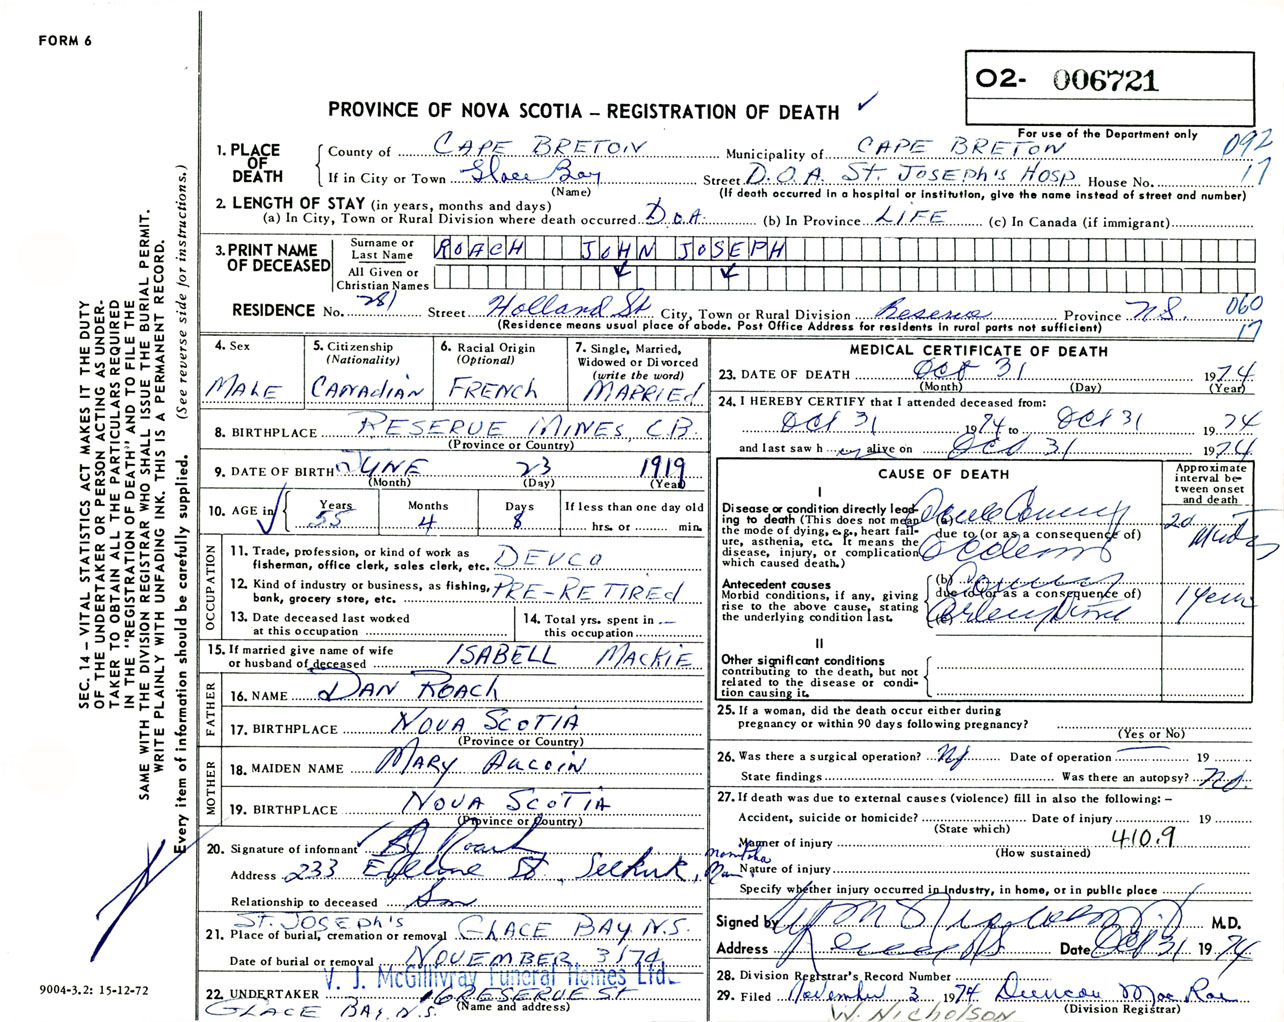 FORM 6
O2- 006721
PROVINCE OF NOVA SCOTIA – REGISTRATION OF DEATH ✓
For use of the Department only
092
17
1. PLACE OF DEATH
County of CAPE BRETON Municipality of CAPE BRETON
If in City or Town Glace Bay Street D.O.A. ST. JOSEPH'S HOSP. House No.
(Name) (If death occurred in a hospital or institution, give the name instead of street and number)
2. LENGTH OF STAY (in years, months and days)
(a) In City, Town or Rural Division where death occurred D.O.A. (b) In Province LIFE (c) In Canada (if immigrant)
3. PRINT NAME OF DECEASED
Surname or Last Name ROACH JOHN JOSEPH
All Given or Christian Names
RESIDENCE No. 281 Street Holland St City, Town or Rural Division Reserve Province N.S.
060
17
(Residence means usual place of abode. Post Office Address for residents in rural parts not sufficient)
4. Sex
MALE
5. Citizenship (Nationality)
CANADIAN
6. Racial Origin (Optional)
FRENCH
7. Single, Married, Widowed or Divorced (write the word)
MARRIED
8. BIRTHPLACE RESERVE MINES, C.B.
(Province or Country)
9. DATE OF BIRTH JUNE 23 1919
(Month) (Day) (Year)
10. AGE in
Years 55
Months 4
Days 8
If less than one day old
hrs. or min.
OCCUPATION
11. Trade, profession, or kind of work as fisherman, office clerk, sales clerk, etc. DEVCO
12. Kind of industry or business, as fishing, bank, grocery store, etc. PRE-RETIRED
13. Date deceased last worked at this occupation
14. Total yrs. spent in this occupation
15. If married give name of wife or husband of deceased ISABELL MACKIE
FATHER
16. NAME DAN ROACH
17. BIRTHPLACE NOVA SCOTIA
(Province or Country)
MOTHER
18. MAIDEN NAME MARY AUCOIN
19. BIRTHPLACE NOVA SCOTIA
(Province or Country)
20. Signature of informant Roach
Address 233 Eveline St, Selkirk, Manitoba Man
Relationship to deceased Son
21. Place of burial, cremation or removal ST. JOSEPH'S GLACE BAY, N.S.
Date of burial or removal NOVEMBER 3/74
V. J. McGillivray Funeral Homes Ltd.
22. UNDERTAKER 16 RESERVE ST
GLACE BAY, N.S.
(Name and address)
MEDICAL CERTIFICATE OF DEATH
23. DATE OF DEATH Oct 31 1974
(Month) (Day) (Year)
24. I HEREBY CERTIFY that I attended deceased from:
Oct 31 1974 to Oct 31 1974
and last saw h alive on Oct 31 1974
CAUSE OF DEATH
Approximate interval between onset and death
I
Disease or condition directly leading to death (This does not mean the mode of dying, e.g., heart failure, asthenia, etc. It means the disease, injury, or complication which caused death.)
(a)
due to (or as a consequence of)
20
Antecedent causes
Morbid conditions, if any, giving rise to the above cause, stating the underlying condition last.
(b)
due to (or as a consequence of)
(c)
1 year
II
Other significant conditions contributing to the death, but not related to the disease or condition causing it.
25. If a woman, did the death occur either during pregnancy or within 90 days following pregnancy?
(Yes or No)
26. Was there a surgical operation? No Date of operation 19
State findings Was there an autopsy? No.
27. If death was due to external causes (violence) fill in also the following: –
Accident, suicide or homicide? Date of injury 19
(State which)
Manner of injury 410.9
(How sustained)
Nature of injury
Specify whether injury occurred in Industry, in home, or in public place
Signed by M.D.
Address Date Oct 31 1974
28. Division Registrar's Record Number
29. Filed November 3 1974 Duncan MacRae
(Division Registrar)
W. NICHOLSON
SEC. 14 – VITAL STATISTICS ACT MAKES IT THE DUTY
OF THE UNDERTAKER OR PERSON ACTING AS UNDER-
TAKER TO OBTAIN ALL THE PARTICULARS REQUIRED
IN THE "REGISTRATION OF DEATH" AND TO FILE THE
SAME WITH THE DIVISION REGISTRAR WHO SHALL ISSUE THE BURIAL PERMIT.
WRITE PLAINLY WITH UNFADING INK. THIS IS A PERMANENT RECORD.
Every item of information should be carefully supplied. (See reverse side for instructions.)
9004-3.2: 15-12-72